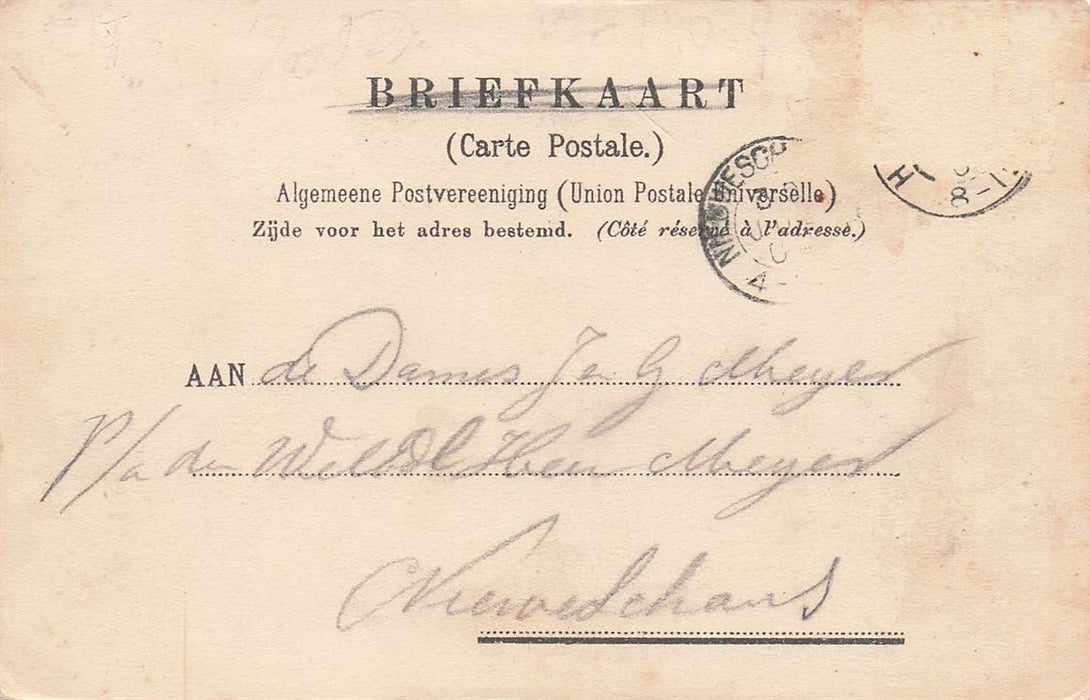 BRIEFKAART
(Carte Postale.)
Algemeene Postvereeniging (Union Postale Universelle)
Zijde voor het adres bestemd. (Côté réservé à l'adresse.)
AAN de Dames J en G Meyer
P/a den Heer Meyer
Nieuweschans